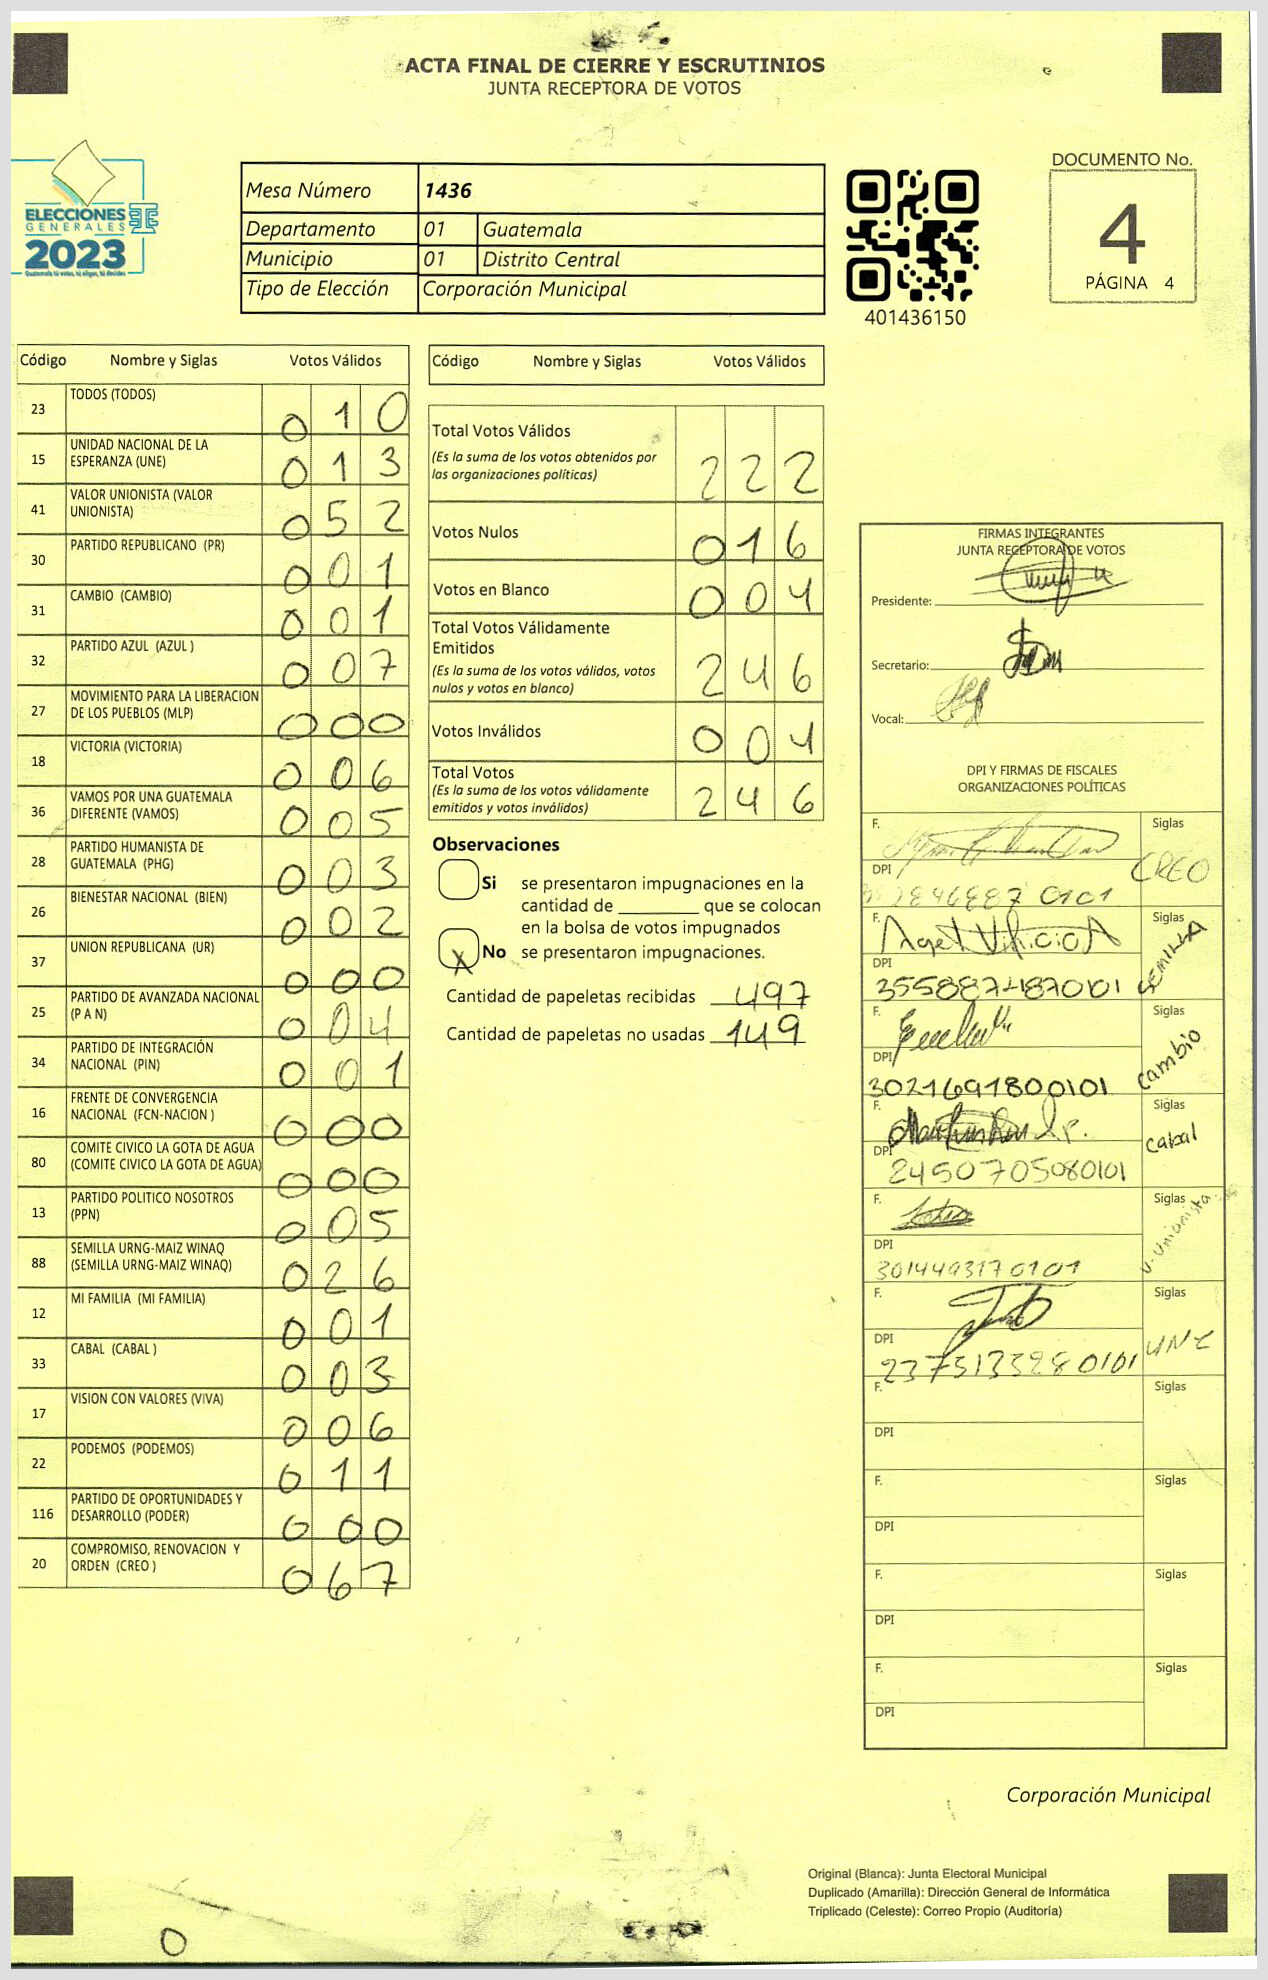 ACTA FINAL DE CIERRE Y ESCRUTINIOS
JUNTA RECEPTORA DE VOTOS
ELECCIONES
GENERALES
2023
Guatemala, tú votas, tú eliges, tú decides
Mesa Número 1436
Departamento 01 Guatemala
Municipio 01 Distrito Central
Tipo de Elección Corporación Municipal
401436150
DOCUMENTO No.
4
PÁGINA 4
Código Nombre y Siglas Votos Válidos
23 TODOS (TODOS) 0 1 0
15 UNIDAD NACIONAL DE LA
ESPERANZA (UNE) 0 1 3
41 VALOR UNIONISTA (VALOR
UNIONISTA) 0 5 2
30 PARTIDO REPUBLICANO (PR) 0 0 1
31 CAMBIO (CAMBIO) 0 0 1
32 PARTIDO AZUL (AZUL ) 0 0 7
27 MOVIMIENTO PARA LA LIBERACION
DE LOS PUEBLOS (MLP) 0 0 0
18 VICTORIA (VICTORIA) 0 0 6
36 VAMOS POR UNA GUATEMALA
DIFERENTE (VAMOS) 0 0 5
28 PARTIDO HUMANISTA DE
GUATEMALA (PHG) 0 0 3
26 BIENESTAR NACIONAL (BIEN) 0 0 2
37 UNION REPUBLICANA (UR) 0 0 0
25 PARTIDO DE AVANZADA NACIONAL
(P A N) 0 0 4
34 PARTIDO DE INTEGRACIÓN
NACIONAL (PIN) 0 0 1
16 FRENTE DE CONVERGENCIA
NACIONAL (FCN-NACION ) 0 0 0
80 COMITE CIVICO LA GOTA DE AGUA
(COMITE CIVICO LA GOTA DE AGUA) 0 0 0
13 PARTIDO POLITICO NOSOTROS
(PPN) 0 0 5
88 SEMILLA URNG-MAIZ WINAQ
(SEMILLA URNG-MAIZ WINAQ) 0 2 6
12 MI FAMILIA (MI FAMILIA) 0 0 1
33 CABAL (CABAL ) 0 0 3
17 VISION CON VALORES (VIVA) 0 0 6
22 PODEMOS (PODEMOS) 0 1 1
116 PARTIDO DE OPORTUNIDADES Y
DESARROLLO (PODER) 0 0 0
20 COMPROMISO, RENOVACION Y
ORDEN (CREO ) 0 6 7
Código Nombre y Siglas Votos Válidos
Total Votos Válidos
(Es la suma de los votos obtenidos por
las organizaciones políticas) 2 2 2
Votos Nulos 0 1 6
Votos en Blanco 0 0 4
Total Votos Válidamente
Emitidos
(Es la suma de los votos válidos, votos
nulos y votos en blanco) 2 4 6
Votos Inválidos 0 0 4
Total Votos
(Es la suma de los votos válidamente
emitidos y votos inválidos) 2 4 6
Observaciones
Si se presentaron impugnaciones en la
cantidad de ________ que se colocan
en la bolsa de votos impugnados
X No se presentaron impugnaciones.
Cantidad de papeletas recibidas 497
Cantidad de papeletas no usadas 149
FIRMAS INTEGRANTES
JUNTA RECEPTORA DE VOTOS
Presidente:
Secretario:
Vocal:
DPI Y FIRMAS DE FISCALES
ORGANIZACIONES POLÍTICAS
F. Siglas
CREO
DPI
F. Siglas
SEMILLA
DPI
F. Siglas
Cambio
DPI
3021691800101
F. Siglas
Cabal
DPI
2450705080101
F. Siglas
V. Unionista
DPI
3014493170101
F. Siglas
UNE
DPI
F. Siglas
DPI
F. Siglas
DPI
F. Siglas
DPI
F. Siglas
DPI
Corporación Municipal
Original (Blanca): Junta Electoral Municipal
Duplicado (Amarilla): Dirección General de Informática
Triplicado (Celeste): Correo Propio (Auditoría)
0